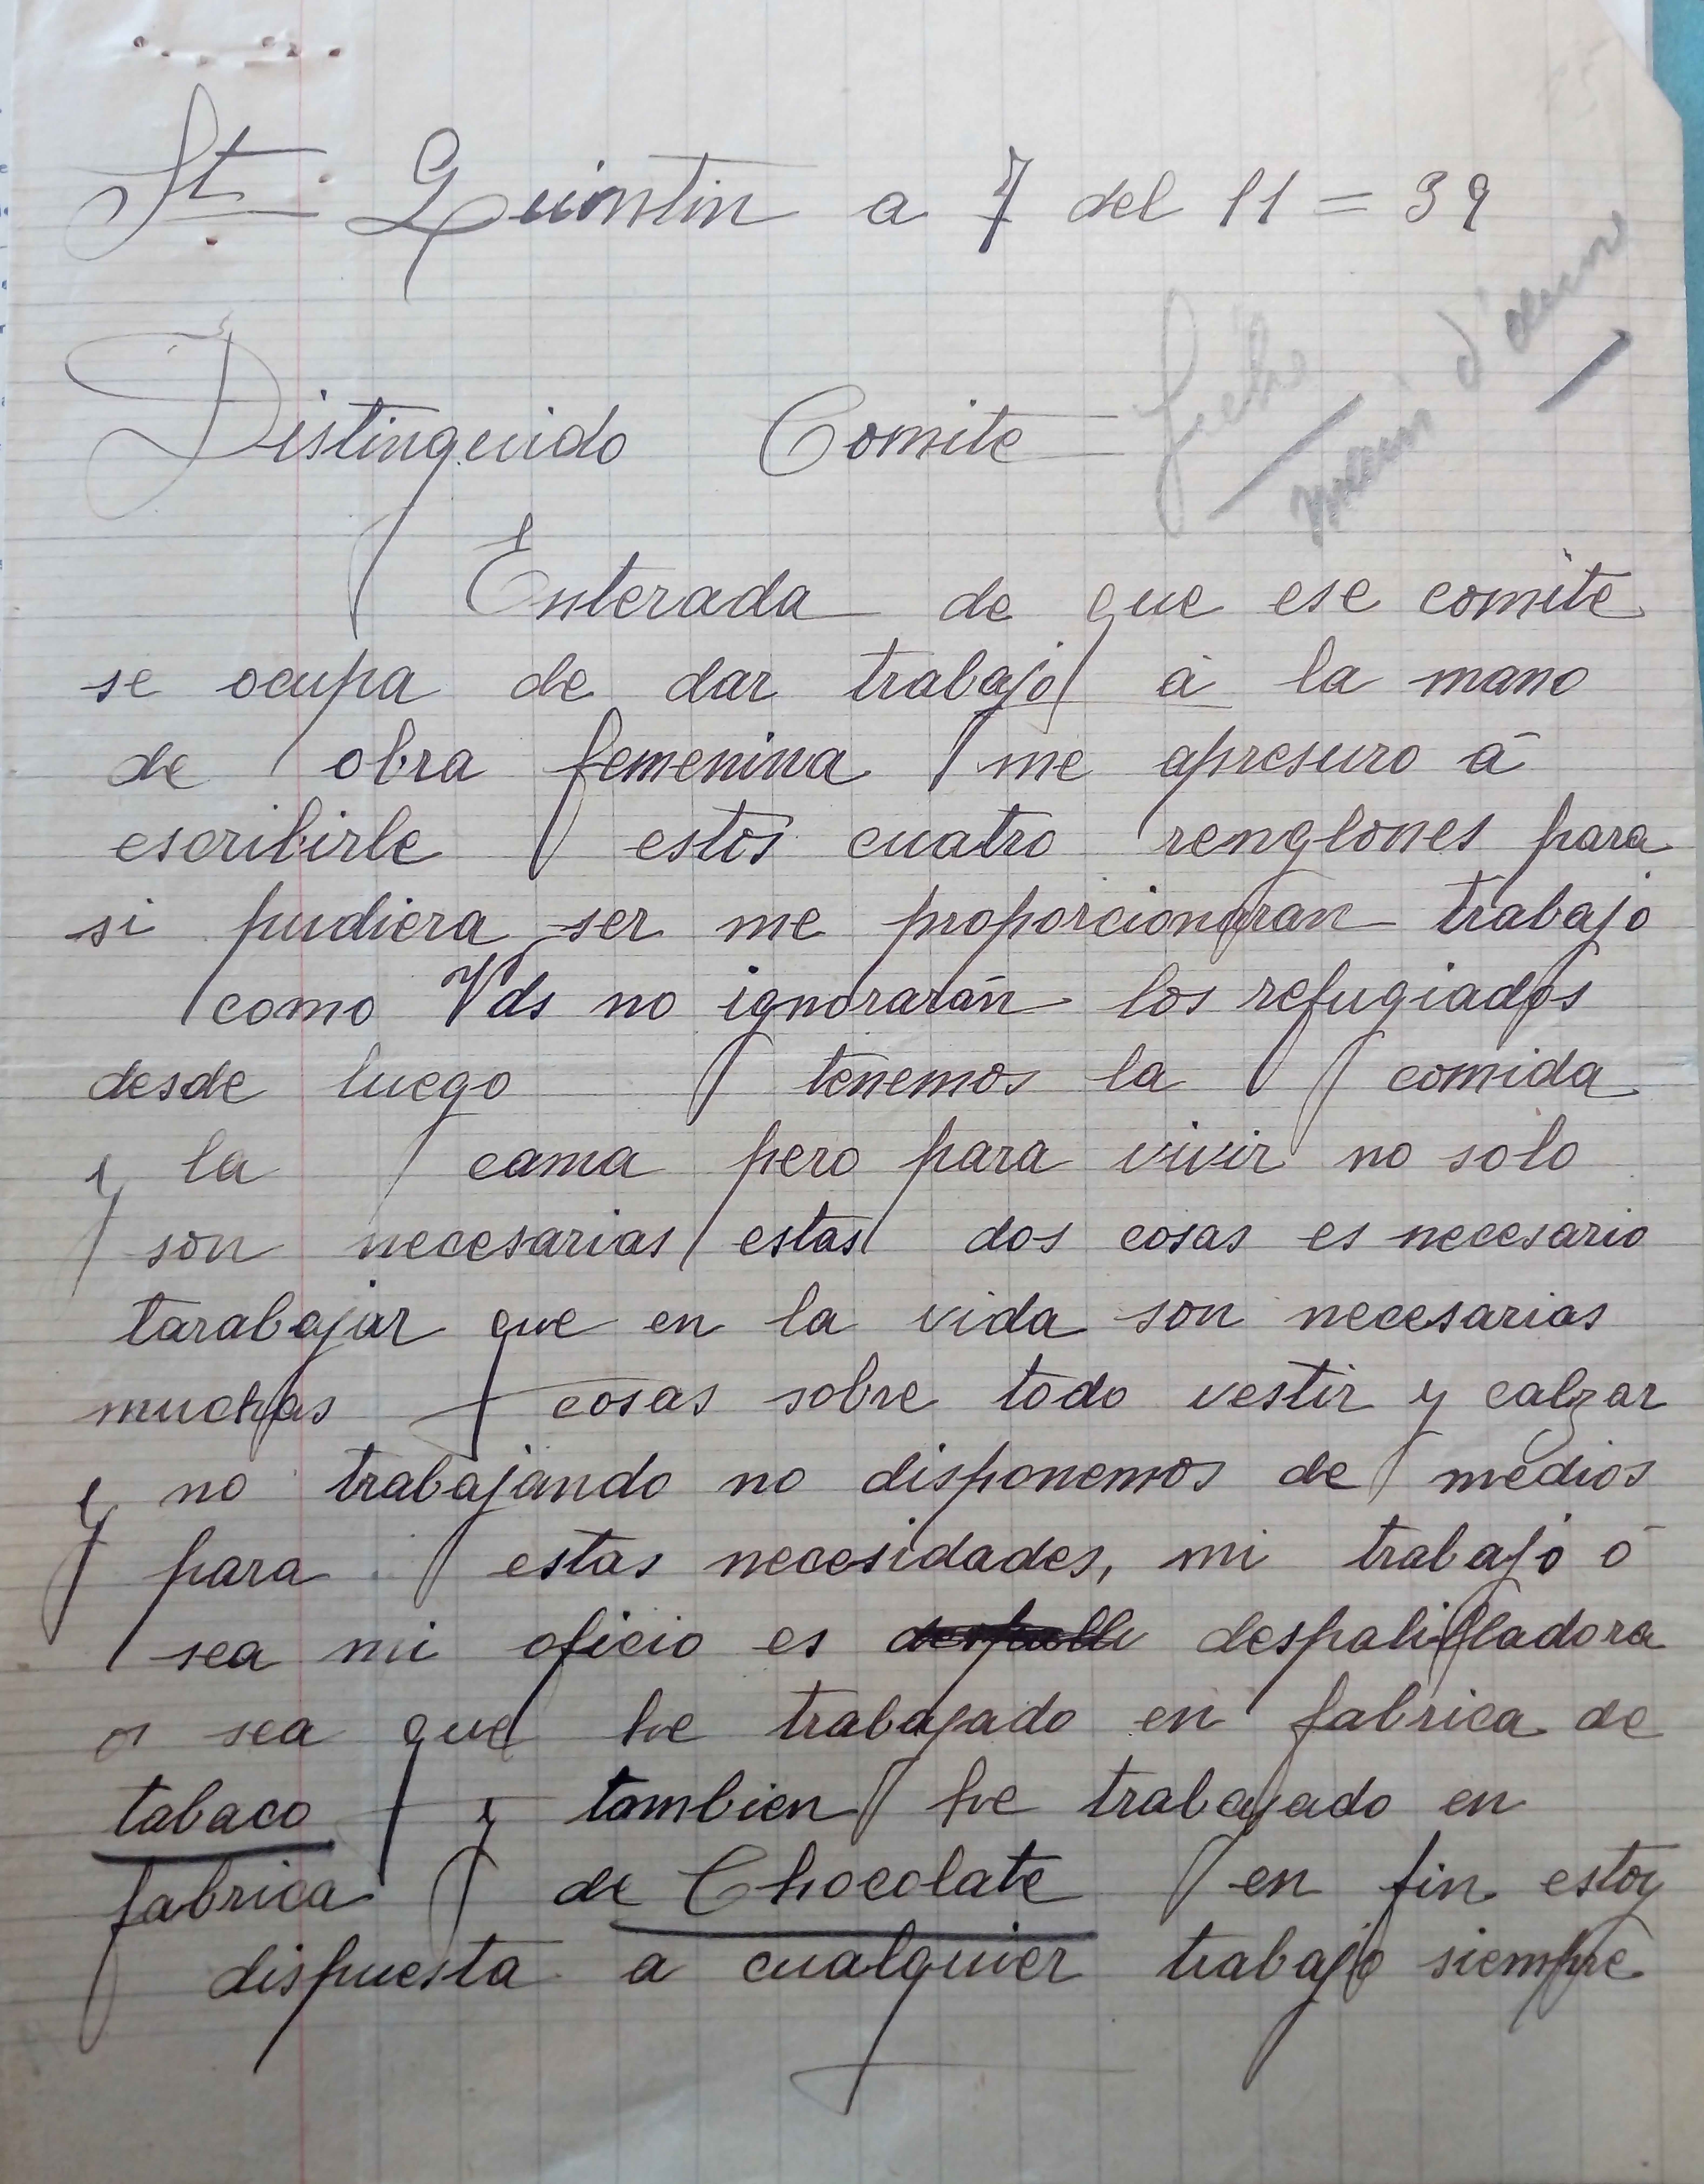 St Quintin a 7 del 11 = 39
fiche
main d'œuvre
Distinguido Comite
Enterada de que ese comite
se ocupa de dar trabajo á la mano
de obra femenina me apresuro á
escribirle estos cuatro renglones para
si pudiera ser me proporcionaran trabajo
como Vds no ignorarán los refugiados
desde luego tenemos la comida
y la cama pero para vivir no solo
son necesarias estas dos cosas es necesario
tarabajar que en la vida son necesarias
muchas cosas sobre todo vestir y calzar
y no trabajando no disponemos de medios
para estas necesidades, mi trabajo ó
sea mi oficio es despalilladora
o sea que he trabajado en fabrica de
tabaco y tambien he trabajado en
fabrica de Chocolate en fin estoy
dispuesta a cualquier trabajo siempre